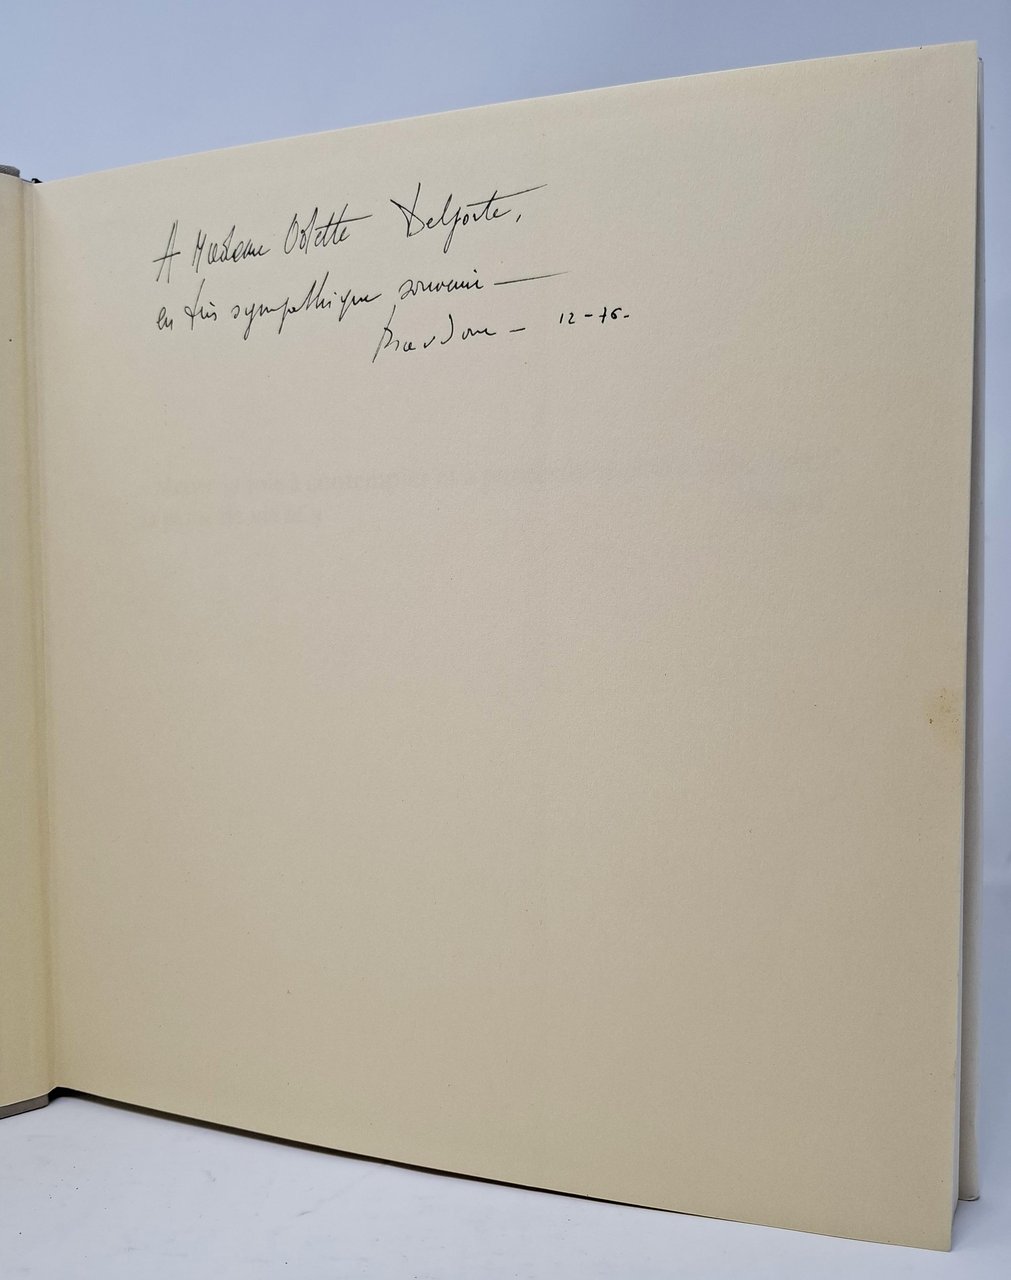 A Madame Odette Delforte,
en très sympathique souvenir —
12-76-